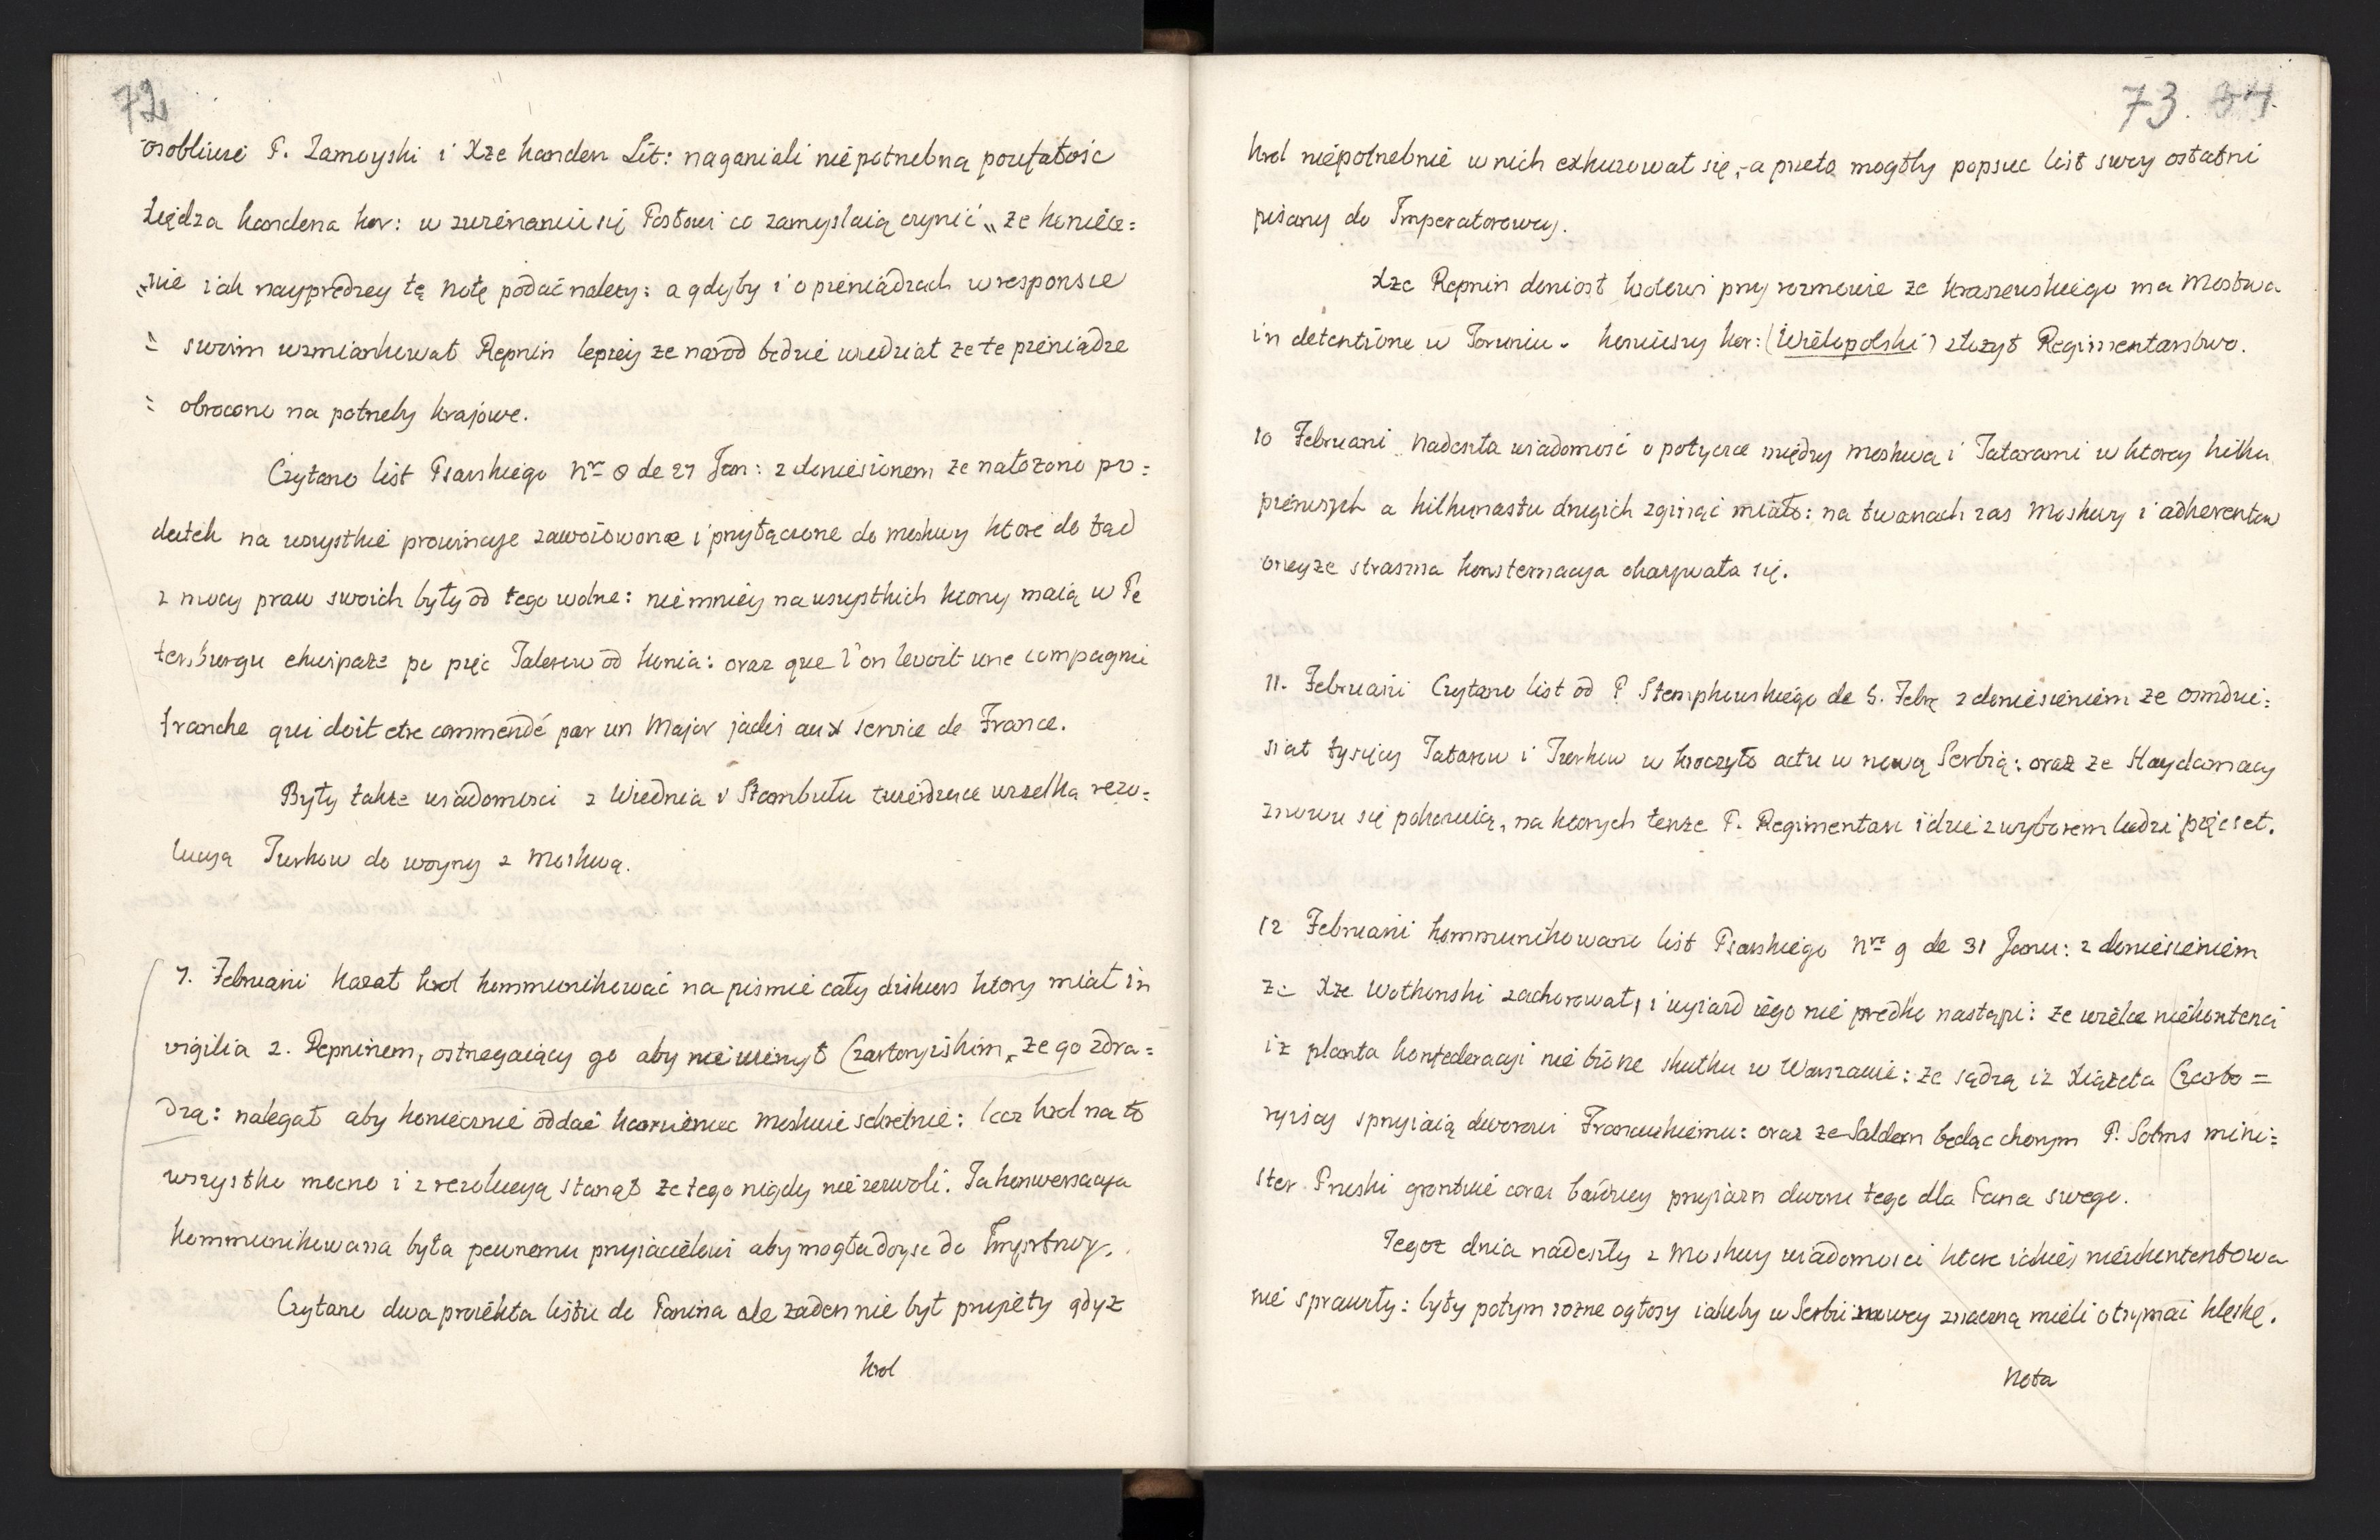 72
osobliwie P. Zamoyski i Xże kanclerz Lit: naganiali niepotrzebną poufałość
księdza kanclerza kor: w zwierzaniu się Posłowi co zamyslaią czynić „że koniecz=
„nie iak nayprędzey tę notę podać należy: a gdyby i o pieniądzach w responsie
„ swoim wzmiankował Repnin lepiey że narod będzie wiedział że te pieniądze
„ obrocone na potrzeby krajowe.
Czytano list Psarskiego Nro 8 de 27 Jan: z doniesieniem że nałożono po=
datek na wszystkie prowincye zawoiowone i przyłączone do moskwy ktore do tąd
z mocy praw swoich były od tego wolne: niemniey na wszystkich ktorzy maią w Pe
tersburgu ekwipaże po pięć Talerow od konia: oraz que l'on levoit une compagnie
franche qui doit etre commendé par un Major jadis aux service de France.
Były także wiadomosci z Wiednia i Stambułu twierdzące wszelką rezo=
lucyą Turkow do woyny z Moskwą.
7. Februarii kazał krol kommunikować na pismie cały diskurs ktory miał in
vigilia z. Repninem, ostrzegaiący go aby nie wierzył Czartoryiskim, że go zdra=
dzą: nalegał aby koniecznie oddać kamieniec Moskwie sekretnie: lecz krol na to
wszystko mocno i z rezolucyą stanął że tego nigdy nie zezwoli. Ta konwersacya
kommunikowana była pewnemu przyiacielowi aby mogła doyść do Impertrwy.
Czytano dwa proiekta listu do Panina ale żaden nie był przyięty gdyż
krol
73. 34.
krol niepotrzebnie w nich exkuzował się, a przeto mogłby popsuc list swoy ostatni
pisany do Imperatorowey.
Xże Repnin doniosł krolowi przy rozmowie że kraszewskiego ma Moskwa
in detentione w Toruniu. koniuszy kor: (Wielopolski) złożył Regimentarstwo.
10 Februarii nadeszła wiadomość o potyczce między moskwą i Tatarami w ktorey kilku
pierwszych a kilkunastu drugich zginąć miało: na twarzach zas Moskwy i adherentow
oneyże straszna konsternacya okazywała się.
11. Februarii Czytano list od P Stempkowskiego de 5. Febr z doniesieniem że osmdzie=
siat tysięcy Tatarow i Turkow w kroczyło actu w nową Serbią: oraz że Haydamacy
znowu się pokazuią, na ktorych tenże P. Regimentarz idzie z wyborem ludzi pięcset.
12 Februarii kommunikowano list Psarskiego Nro 9 de 31 Janu: z doniesieniem
że Xże Wołkonski zachorował, i wyiazd iego nie prędko nastąpi: że wielce niekontenci
iż planta konfederacyi nie bierze skutku w Warszawie: że sądzą iż Xiążeta Czarto=
ryiscy sprzyiaią dworowi Francuskiemu: oraz że Saldern będąc chorym P. Solms mini=
ster Pruski gruntuie coraz bardziey przyiazn dworu tego dla Pana swego.
Tegoż dnia nadeszły z Moskwy wiadomosci ktore iakieś nieukontentowa
nie sprawiły: były potym rożne ogłosy iakoby w Serbii nowey znaczną mieli otrzymać klęskę.
Nota